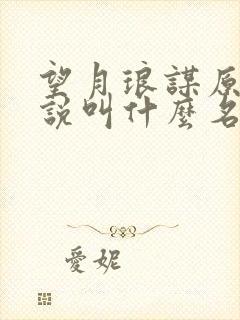 望月琅謀原
說叫什麼名
愛妮